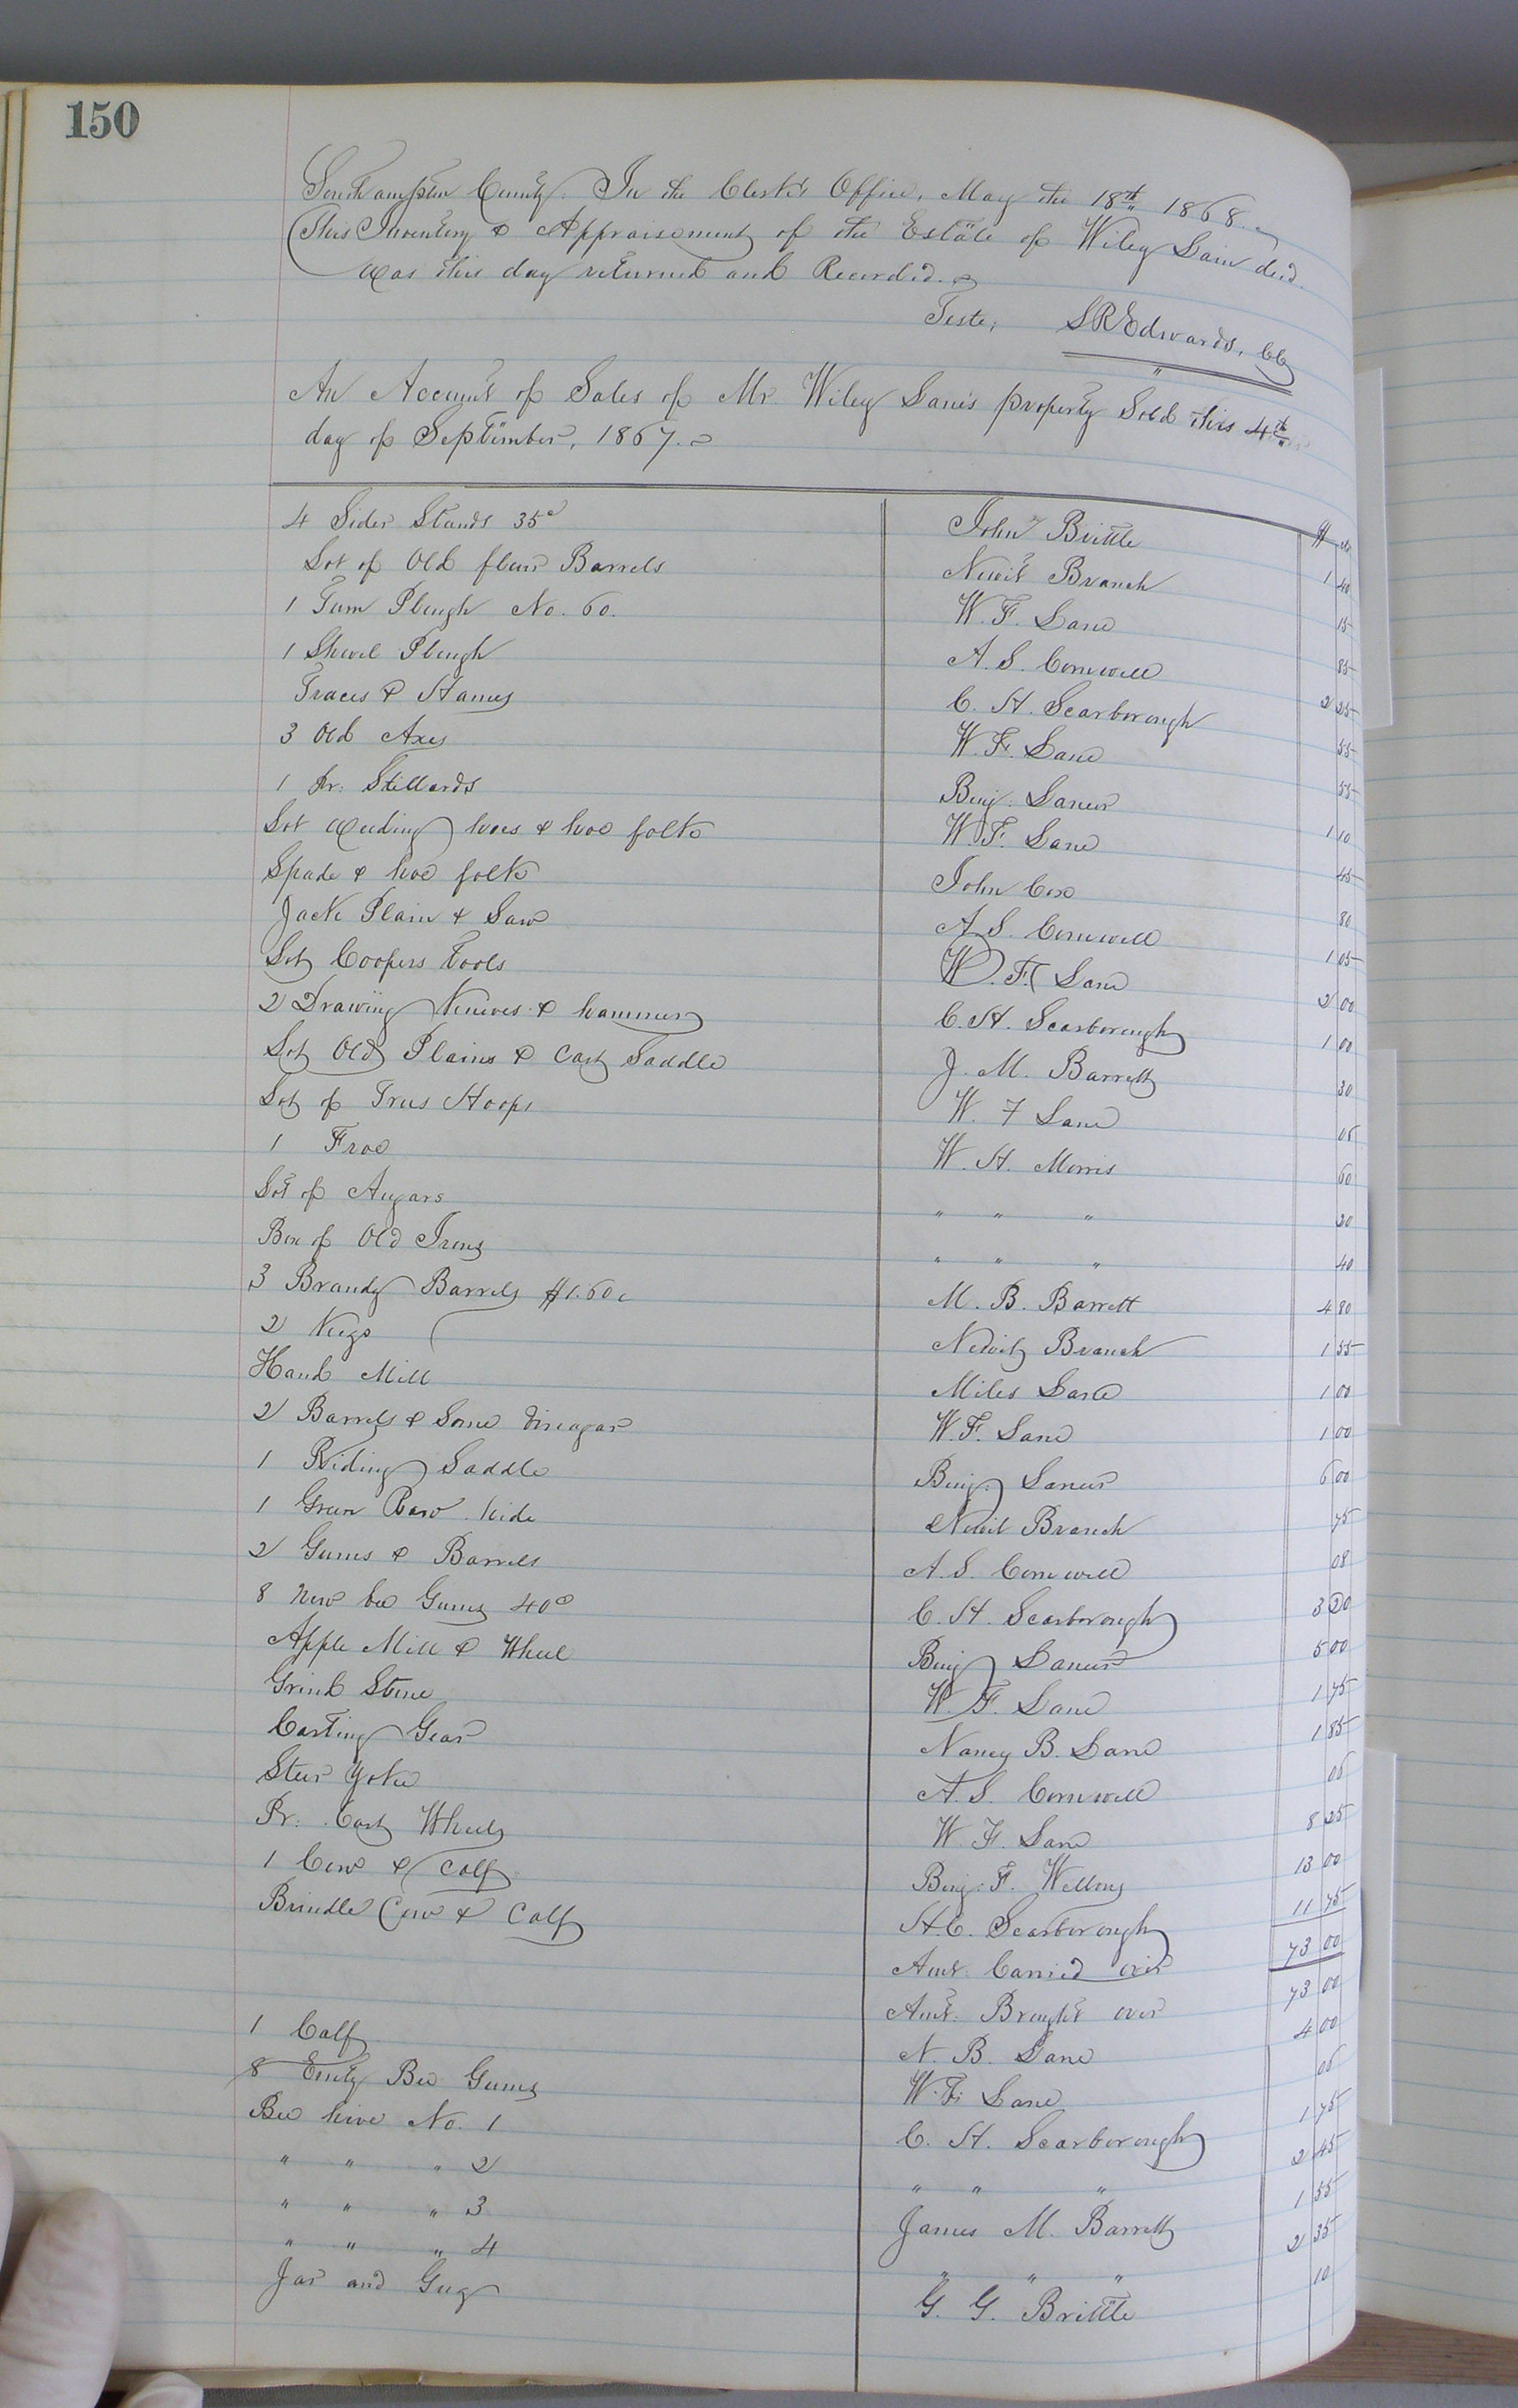 150
Southampton County. In the Clerk's Office, May the 18th 1868.
This Inventory & Appraisement of the Estate of Wiley Lain decd.
was this day returned and Recorded.
Teste; S R Edwards, CC
An Account of Sales of Mr. Wiley Lane's property Sold this 4th
day of September, 1867.
$ cts
4 Sider Stands 35c John Brittle 1 40
Lot of Old flour Barrels Newit Branch 15
1 Turn Plough No. 60. W. F. Lane 85
1 Shovel Plough A. S. Cornwell 2 25
Traces & Hames C. H. Scarborough 55
3 Old Axes W. F. Lane 55
1 Pr: Stillards Benj. Laneir 1 10
Lot weeding hoes & hoe folks W. F. Lane 45
Spade & hoe folk John Cox 80
Jack Plain & Saw A. S. Cornwell 1 05
Lot Coopers Tools W. F. Lane 2 00
2 Drawing Knieves & hammer C. H. Scarborough 1 00
Lot Old Plains & Cart Saddle J. M. Barrett 30
Lot of Trus Hoops W. F Lane 05
1 Froe W. H. Morris 60
Lot of Augars " " " 20
Box of Old Irons " " " 40
3 Brandy Barrels $1.60c M. B. Barrett 4 80
2 Kegs Newit Branch 1 55
Hand Mill Miles Lane 1 00
2 Barrels & Some Vineagar W. F. Lane 1 00
1 Riding Saddle Benj. Laneir 6 00
1 Green Raw hide Newit Branch 75
2 Gums & Barrels A. S. Cornwell 08
8 New bee Gums 40c C. H. Scarborough 3 20
Apple Mill & Wheel Benj Laneir 5 00
Grind Stone W. F. Lane 1 75
Carting Gear Nancy B. Lane 1 85
Steer Yoke A. S. Cornwell 05
Pr: Cart Wheels W. F. Lane 8 25
1 Cow & Calf Benj. F. Wellons 13 00
Brindle Cow & Calf H. C. Scarborough 11 75
Amt. Carried over 73 00
Amt. Brought over 73 00
1 Calf N. B. Lane 4 00
8 Emty Bee Gums W. F. Lane 05
Bee hive No. 1 C. H. Scarborough 1 75
" " " 2 " " " 2 45
" " " 3 James M. Barrett 1 55
" " " 4 " " " 2 35
Jar and Gug G. G. Brittle 10